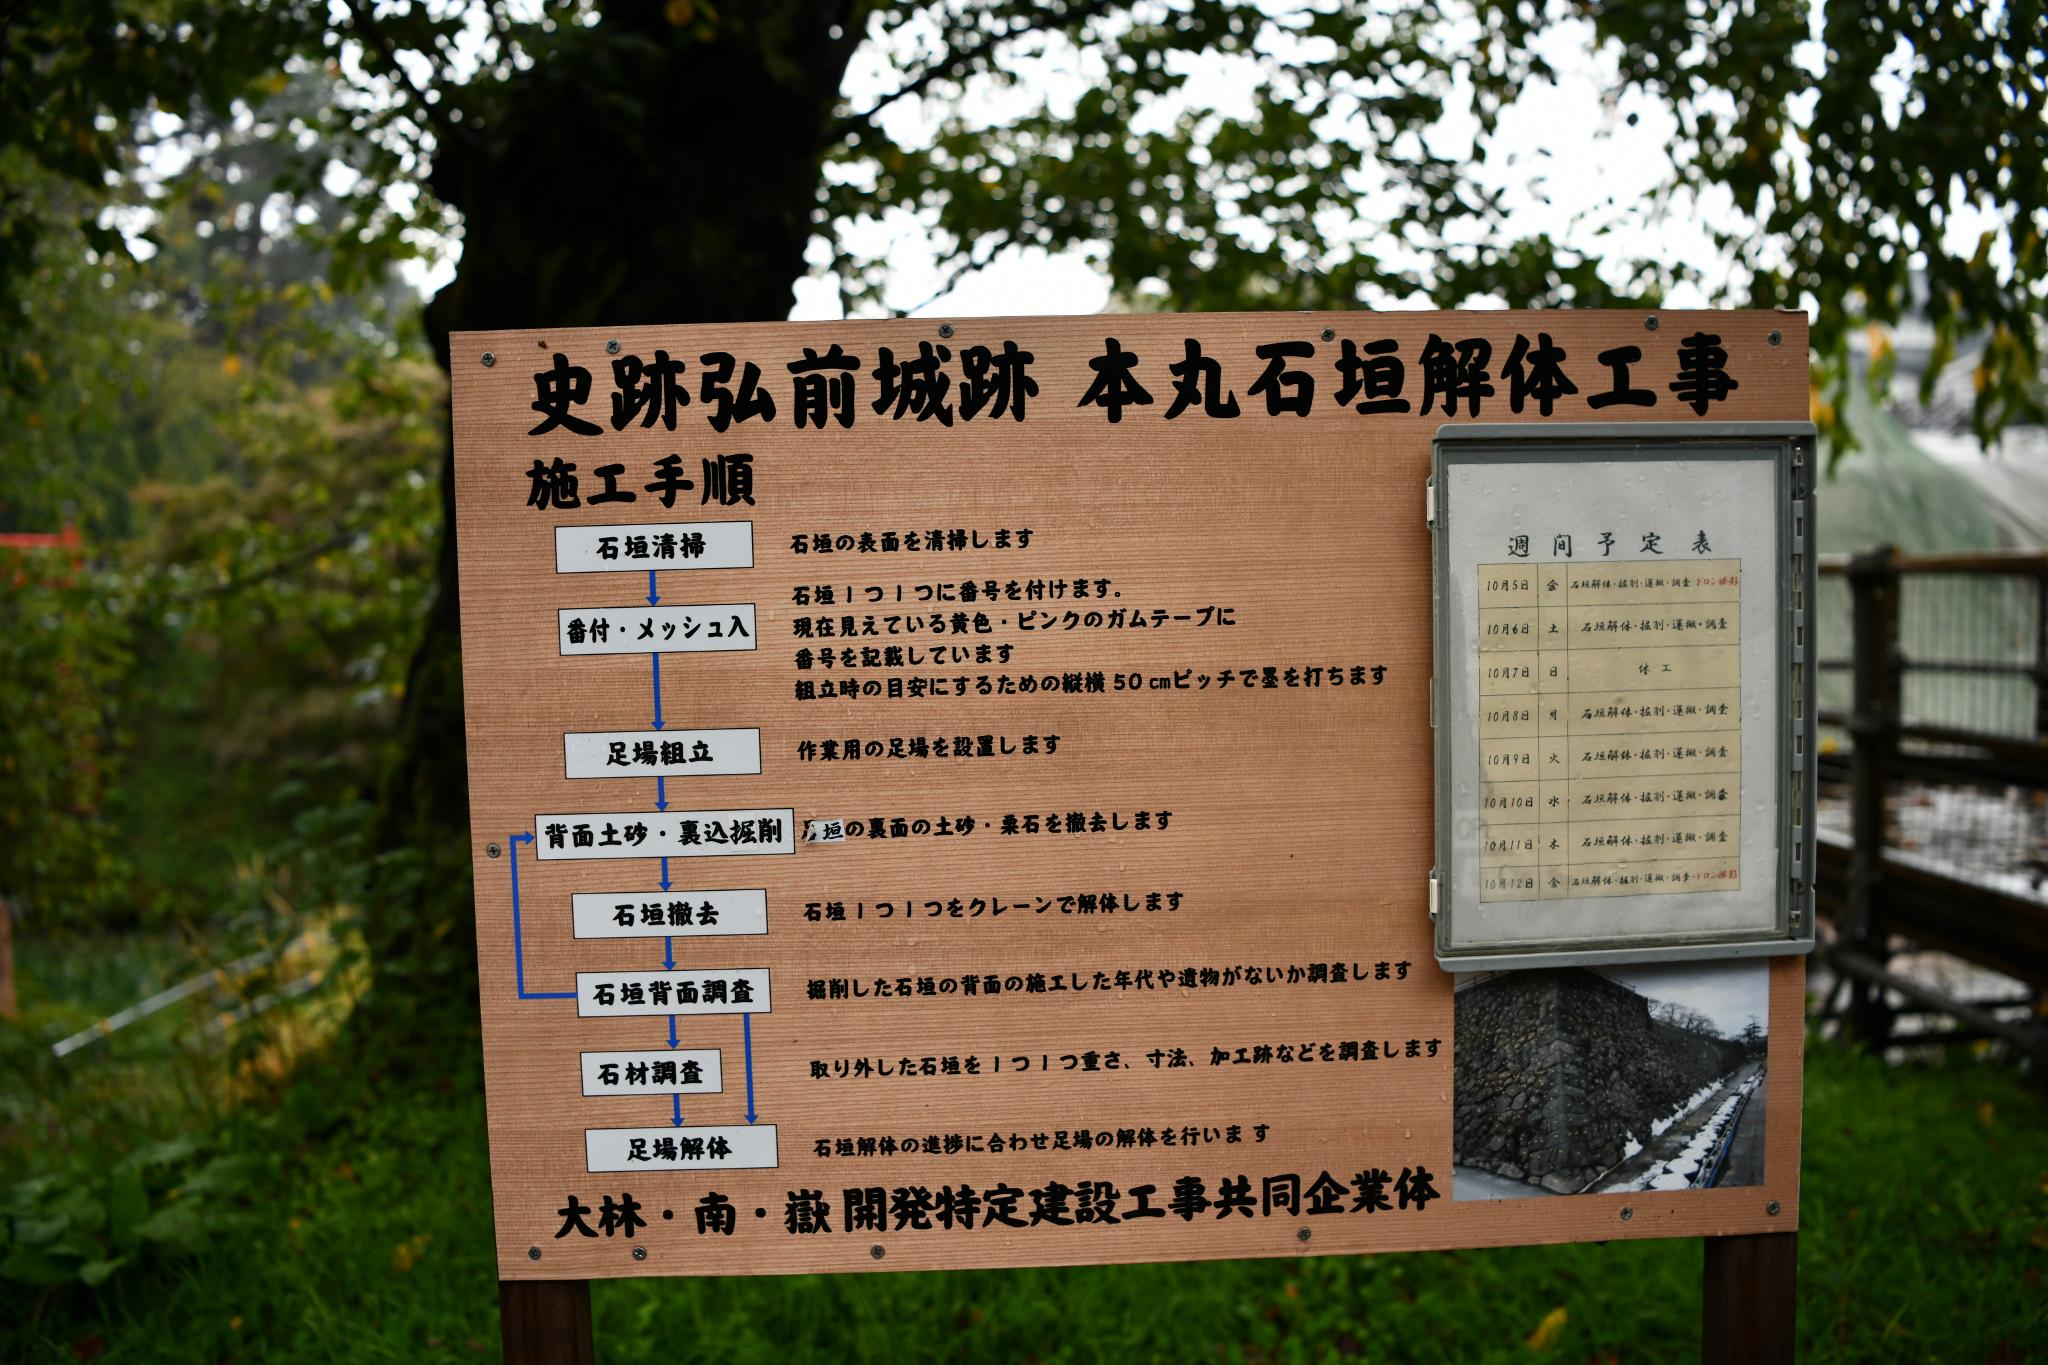 史跡弘前城跡 本丸石垣解体工事
施工手順
石垣清掃
石垣の表面を清掃します
番付・メッシュ入
石垣1つ1つに番号を付けます。
現在見えている黄色・ピンクのガムテープに
番号を記載しています
組立時の目安にするための縦横50㎝ピッチで墨を打ちます
足場組立
作業用の足場を設置します
背面土砂・裏込掘削
石垣の裏面の土砂・栗石を撤去します
石垣撤去
石垣1つ1つをクレーンで解体します
石垣背面調査
掘削した石垣の背面の施工した年代や遺物がないか調査します
石材調査
取り外した石垣を1つ1つ重さ、寸法、加工跡などを調査します
足場解体
石垣解体の進捗に合わせ足場の解体を行います
大林・南・嶽開発特定建設工事共同企業体
週間予定表
10月5日 金 石垣解体・掘削・運搬・調査 ドローン撮影
10月6日 土 石垣解体・掘削・運搬・調査
10月7日 日 休工
10月8日 月 石垣解体・掘削・運搬・調査
10月9日 火 石垣解体・掘削・運搬・調査
10月10日 水 石垣解体・掘削・運搬・調査
10月11日 木 石垣解体・掘削・運搬・調査
10月12日 金 石垣解体・掘削・運搬・調査・ドローン撮影